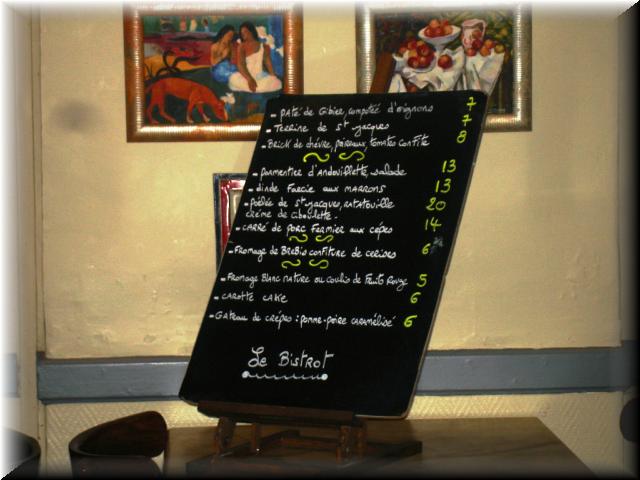 - Paté de Gibier, compotée d'oignons 7
- Terrine de St Jacques 7
- Brick de chèvre, poireaux, tomates confite 8
- Parmentier d'Andouillette, salade 13
- dinde Farcie aux MARRONS 13
- poêlée de St-Jacques, RATATOUILLE 20
crème de ciboulette.
- CARRÉ de PORC Fermier aux cèpes 14
- Fromage de BREBIS confiture de cerises 6
- Fromage Blanc nature ou coulis de Fruits Rouge 5
- CAROTTE CAKE 6
- Gateau de crêpes : pomme-poire caramélisé 6
Le Bistrot